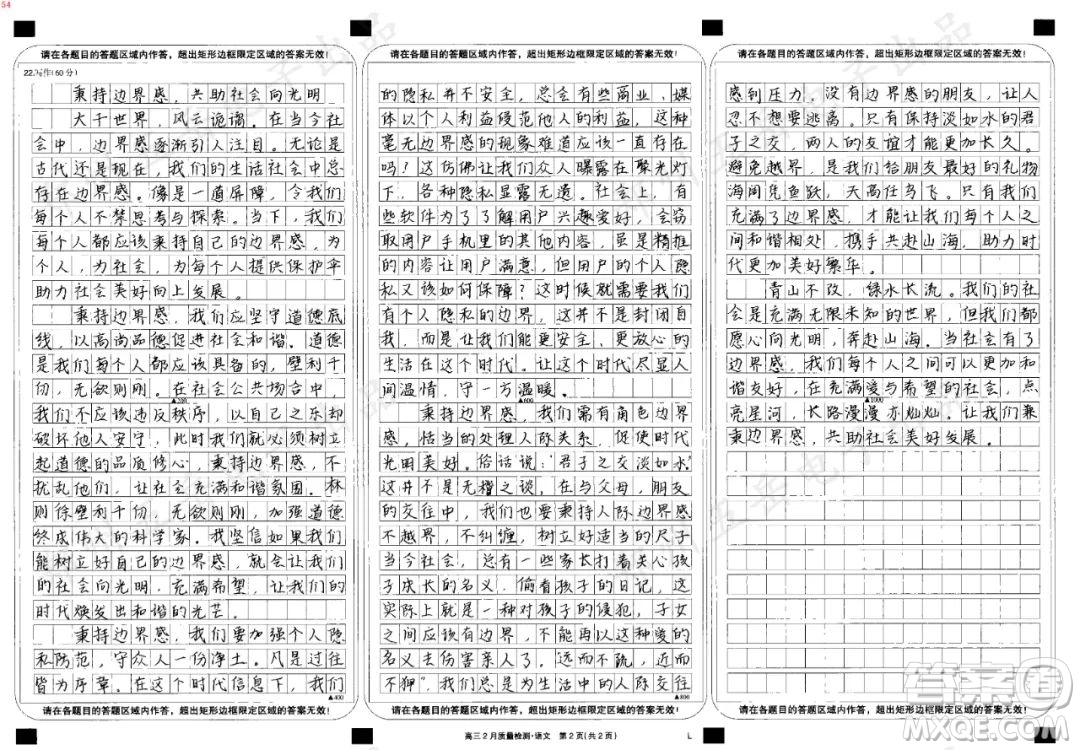 54
请在各题目的答题区域内作答，超出矩形边框限定区域的答案无效！
22.写作(60分)
秉持边界感，共助社会向光明
大千世界，风云诡谲。在当今社
会中，边界感逐渐引人注目。无论是
古代还是现在，我们的生活社会中总
存在边界感。像是一道屏障，令我们
每个人不禁思考与探索。当下，我们
每个人都应该秉持自己的边界感，为
个人，为社会，为每个人提供保护伞
助力社会美好向上发展。
秉持边界感，我们应坚守道德底
线，以高尚品德促进社会和谐。道德
是我们每个人都应该具备的，壁利千
仞，无欲则刚。在社会公共场合中，
▲200
我们不应该违反秩序，以自己之乐却
破坏他人安宁，此时我们就必须树立
起道德的品质修心，秉持边界感，不
扰乱他们，让社会充满和谐氛围。林
则徐壁利千仞，无欲则刚，加强道德
终成伟大的科学家。我坚信如果我们
能树立好自己的边界感，就会让我们
的社会向光明，充满希望，让我们的
时代焕发出和谐的光芒。
秉持边界感，我们要加强个人隐
私防范，守众人一份净土。凡是过往
皆为序章。在这个时代信息下，我们
▲400
请在各题目的答题区域内作答，超出矩形边框限定区域的答案无效！
请在各题目的答题区域内作答，超出矩形边框限定区域的答案无效！
的隐私并不安全，总会有些商业，媒
体以个人利益侵范他人的利益，这种
毫无边界感的现象难道应该一直存在
吗？这仿佛让我们众人曝露在聚光灯
下，各种隐私显露无遗。社会上，有
些软件为了了解用户兴趣爱好，会窃
取用户手机里的其他内容，虽是精推
的内容让用户满意，但用户的个人隐
私又该如何保障？这时候就需要我们
有个人隐私的边界，这并不是封闭自
我，而是让我们能更安全、更放心的
生活在这个时代。让这个时代尽显人
间温情，守一方温暖。
▲600
秉持边界感，我们需有角色边界
感，恰当的处理人际关系，促使时代
光明美好。俗话说：“君子之交淡如水”
这并不是无稽之谈，在与父母，朋友
的交往中，我们也要秉持人际边界感
不越界，不纠缠，树立好适当的尺子
当今社会，总有一些家长打着关心孩
子成长的名义，偷看孩子的日记，这
实际上就是一种对孩子的侵犯，子女
之间应该有边界，不能再以这种爱的
名义去伤害亲人了。远而不疏，近而
不狎”，我们总是为生活中的人际交往
▲800
请在各题目的答题区域内作答，超出矩形边框限定区域的答案无效！
高三2月质量检测·语文 第2页(共2页)
请在各题目的答题区域内作答，超出矩形边框限定区域的答案无效！
感到压力，没有边界感的朋友，让人
忍不想要逃离。只有保持淡如水的君
子之交，两人的友谊才能更加长久。
避免越界，是我们给朋友最好的礼物
海阔凭鱼跃，天高任鸟飞。只有我们
充满了边界感，才能让我们每个人之
间和谐相处，携手共赴山海，助力时
代更加美好繁华。
青山不改，绿水长流。我们的社
会是充满无限未知的世界，但我们都
愿心向光明，奔赴山海。当社会有了
边界感，我们每个人之间可以更加和
谐友好，在充满爱与希望的社会，点
▲1000
亮星河，长路漫漫亦灿灿，让我们秉
秉边界感，共助社会美好发展。
请在各题目的答题区域内作答，超出矩形边框限定区域的答案无效！
L
答案圈
MXQE.COM